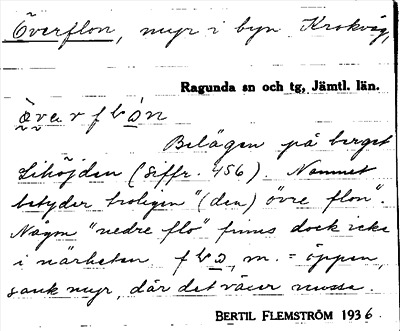 Överflon, myr i byn Krokvåg,
Ragunda sn och tg, Jämtl. län.
Belägen på berget
Lihöjden (Siffr. 456). Namnet
betyder troligen "(den) övre flon".
Någon "nedre flo" finns dock icke
i närheten. m. = öppen,
sank myr, där det växer mossa.
BERTIL FLEMSTRÖM 1936.